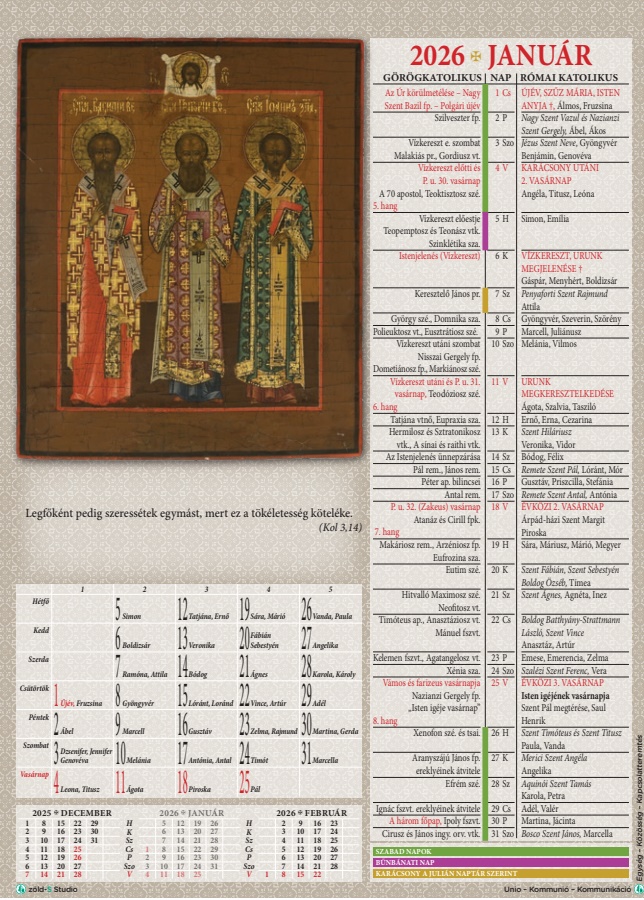 2026 ✠ JANUÁR
GÖRÖGKATOLIKUS | NAP | RÓMAI KATOLIKUS
Az Úr körülmetélése – Nagy 1 Cs ÚJÉV, SZŰZ MÁRIA, ISTEN
Szent Bazil fp. – Polgári újév ANYJA †, Álmos, Fruzsina
Szilveszter fp. 2 P Nagy Szent Vazul és Nazianzi
Szent Gergely, Ábel, Ákos
Vízkereszt e. szombat 3 Szo Jézus Szent Neve, Gyöngyvér
Malakiás pr., Gordiusz vt. Benjámin, Genovéva
Vízkereszt előtti és 4 V KARÁCSONY UTÁNI
P. u. 30. vasárnap 2. VASÁRNAP
A 70 apostol, Teoktisztosz szé. Angéla, Titusz, Leóna
5. hang
Vízkereszt előestje 5 H Simon, Emília
Teopemptosz és Teonász vtk.
Szinklétika sza.
Istenjelenés (Vízkereszt) 6 K VÍZKERESZT, URUNK
MEGJELENÉSE †
Gáspár, Menyhért, Boldizsár
Keresztelő János pr. 7 Sz Penyaforti Szent Rajmund
Attila
György szé., Domnika sza. 8 Cs Gyöngyvér, Szeverin, Szörény
Polieuktosz vt., Eusztrátiosz szé. 9 P Marcell, Juliánusz
Vízkereszt utáni szombat 10 Szo Melánia, Vilmos
Nisszai Gergely fp.
Dometiánosz fp., Markiánosz szé.
Vízkereszt utáni és P. u. 31. 11 V URUNK
vasárnap, Teodóziosz szé. MEGKERESZTELKEDÉSE
6. hang Ágota, Szalvia, Tasziló
Tatjána vtnő, Eupraxia sza. 12 H Ernő, Erna, Cezarina
Hermilosz és Sztratonikosz 13 K Szent Hiláriusz
vtk., A sinai és raithi vtk. Veronika, Vidor
Az Istenjelenés ünnepzárása 14 Sz Bódog, Félix
Pál rem., János rem. 15 Cs Remete Szent Pál, Lóránt, Mór
Péter ap. bilincsei 16 P Gusztáv, Priszcilla, Stefánia
Antal rem. 17 Szo Remete Szent Antal, Antónia
P. u. 32. (Zakeus) vasárnap 18 V ÉVKÖZI 2. VASÁRNAP
Atanáz és Cirill fpk. Árpád-házi Szent Margit
7. hang Piroska
Makáriosz rem., Arzéniosz fp. 19 H Sára, Máriusz, Márió, Megyer
Eufrozina sza.
Eutim szé. 20 K Szent Fábián, Szent Sebestyén
Boldog Özséb, Tímea
Hitvalló Maximosz szé. 21 Sz Szent Ágnes, Agnéta, Inez
Neofitosz vt.
Timóteus ap., Anasztáziosz vt. 22 Cs Boldog Batthyány-Strattmann
Mánuel fszvt. László, Szent Vince
Anasztáz, Artúr
Kelemen fszvt., Agatangelosz vt. 23 P Emese, Emerencia, Zelma
Xénia sza. 24 Szo Szalézi Szent Ferenc, Vera
Vámos és farizeus vasárnapja 25 V ÉVKÖZI 3. VASÁRNAP
Nazianzi Gergely fp. Isten igéjének vasárnapja
„Isten igéje vasárnap” Szent Pál megtérése, Saul
8. hang Henrik
Xenofon szé. és tsai. 26 H Szent Timóteus és Szent Titusz
Paula, Vanda
Aranyszájú János fp. 27 K Merici Szent Angéla
ereklyéinek átvitele Angelika
Efrém szé. 28 Sz Aquinói Szent Tamás
Karola, Petra
Ignác fszvt. ereklyéinek átvitele 29 Cs Adél, Valér
A három főpap, Ipoly fszvt. 30 P Martina, Jácinta
Cirusz és János ingy. orv. vtk. 31 Szo Bosco Szent János, Marcella
SZABAD NAPOK
BŰNBÁNATI NAP
KARÁCSONY A JULIÁN NAPTÁR SZERINT
Legfőként pedig szeressétek egymást, mert ez a tökéletesség köteléke.
(Kol 3,14)
1 2 3 4 5
Hétfő 5 Simon 12 Tatjána, Ernő 19 Sára, Márió 26 Vanda, Paula
Kedd 6 Boldizsár 13 Veronika 20 Fábián Sebestyén 27 Angelika
Szerda 7 Ramóna, Attila 14 Bódog 21 Ágnes 28 Karola, Károly
Csütörtök 1 Újév, Fruzsina 8 Gyöngyvér 15 Lóránt, Loránd 22 Vince, Artúr 29 Adél
Péntek 2 Ábel 9 Marcell 16 Gusztáv 23 Zelma, Rajmund 30 Martina, Gerda
Szombat 3 Dzsenifer, Jennifer Genovéva 10 Melánia 17 Antónia, Antal 24 Timót 31 Marcella
Vasárnap 4 Leona, Titusz 11 Ágota 18 Piroska 25 Pál
2025 ✠ DECEMBER 2026 ✠ JANUÁR 2026 ✠ FEBRUÁR
1 8 15 22 29 H 5 12 19 26 H 2 9 16 23
2 9 16 23 30 K 6 13 20 27 K 3 10 17 24
3 10 17 24 31 Sz 7 14 21 28 Sz 4 11 18 25
4 11 18 25 Cs 1 8 15 22 29 Cs 5 12 19 26
5 12 19 26 P 2 9 16 23 30 P 6 13 20 27
6 13 20 27 Szo 3 10 17 24 31 Szo 7 14 21 28
7 14 21 28 V 4 11 18 25 V 1 8 15 22
zöld-S Studio
Unio – Kommunió – Kommunikáció
Egység – Közösség – Kapcsolatteremtés